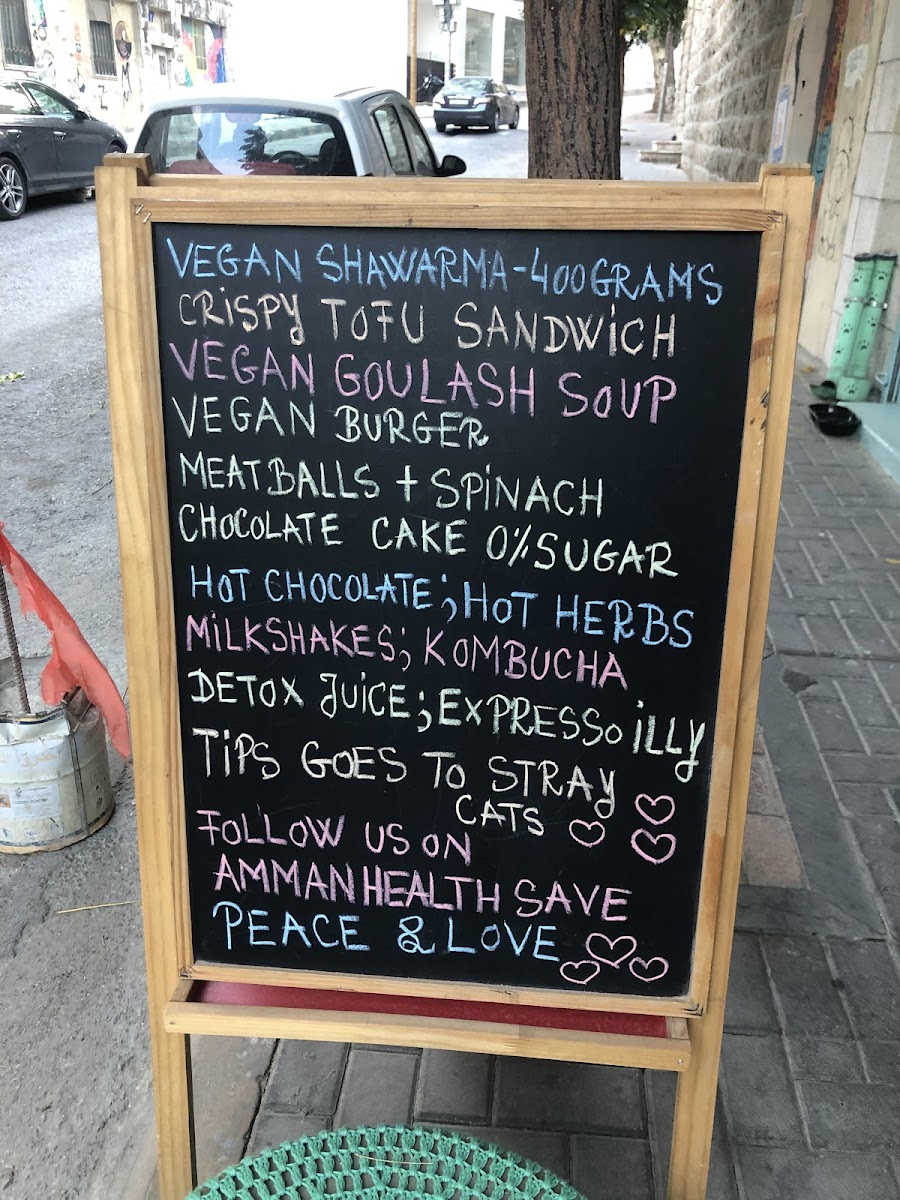 VEGAN SHAWARMA-400GRAMS
CRISPY TOFU SANDWICH
VEGAN GOULASH SOUP
VEGAN BURGER
MEATBALLS + SPINACH
CHOCOLATE CAKE 0% SUGAR
HOT CHOCOLATE; HOT HERBS
MILKSHAKES; KOMBUCHA
DETOX JUICE; EXPRESSO ILLY
TIPS GOES TO STRAY
CATS
FOLLOW US ON
AMMAN HEALTH SAVE
PEACE & LOVE